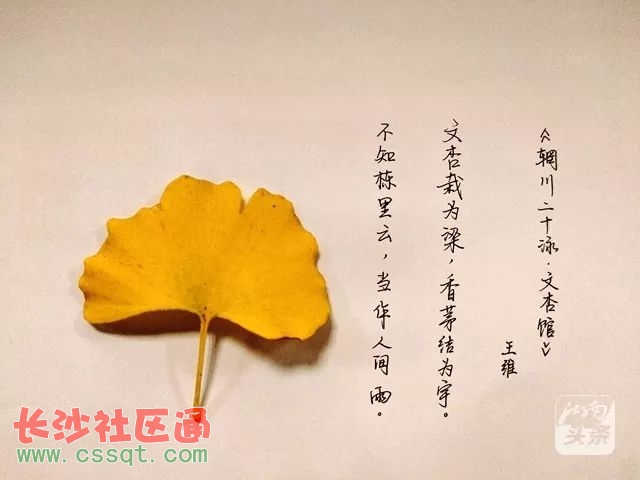 《辋川二十泳·文杏馆》
王维
文杏栽为梁，香茅结为宇。
不知栋里云，当作人间雨。
长沙社区通
www.cssqt.com
湖南
头条